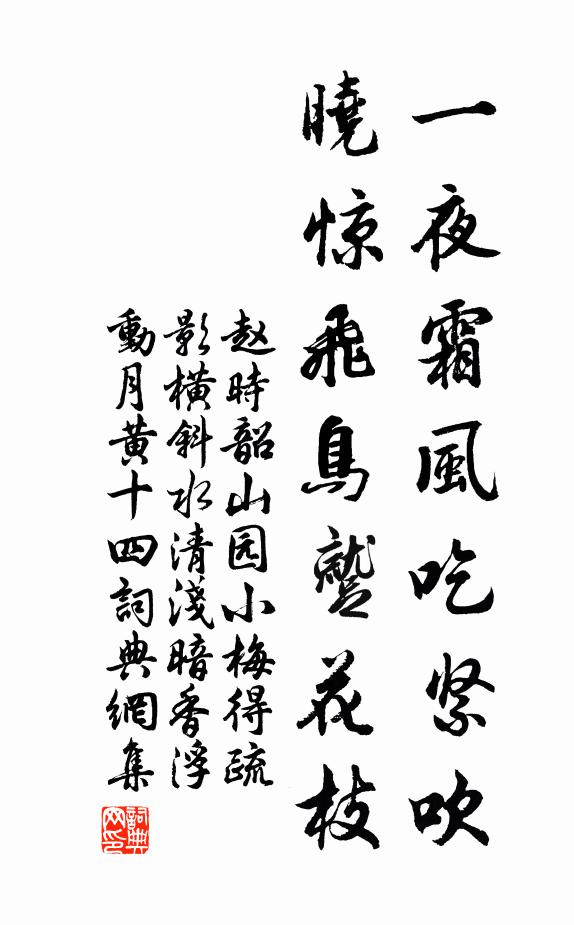 一夜霜風吃紧吹
曉惊飛鳥蹔花枝
赵時韶山园小梅得疏
影橫斜水清淺暗香浮
動月黄十四詞典網集
詞典网印